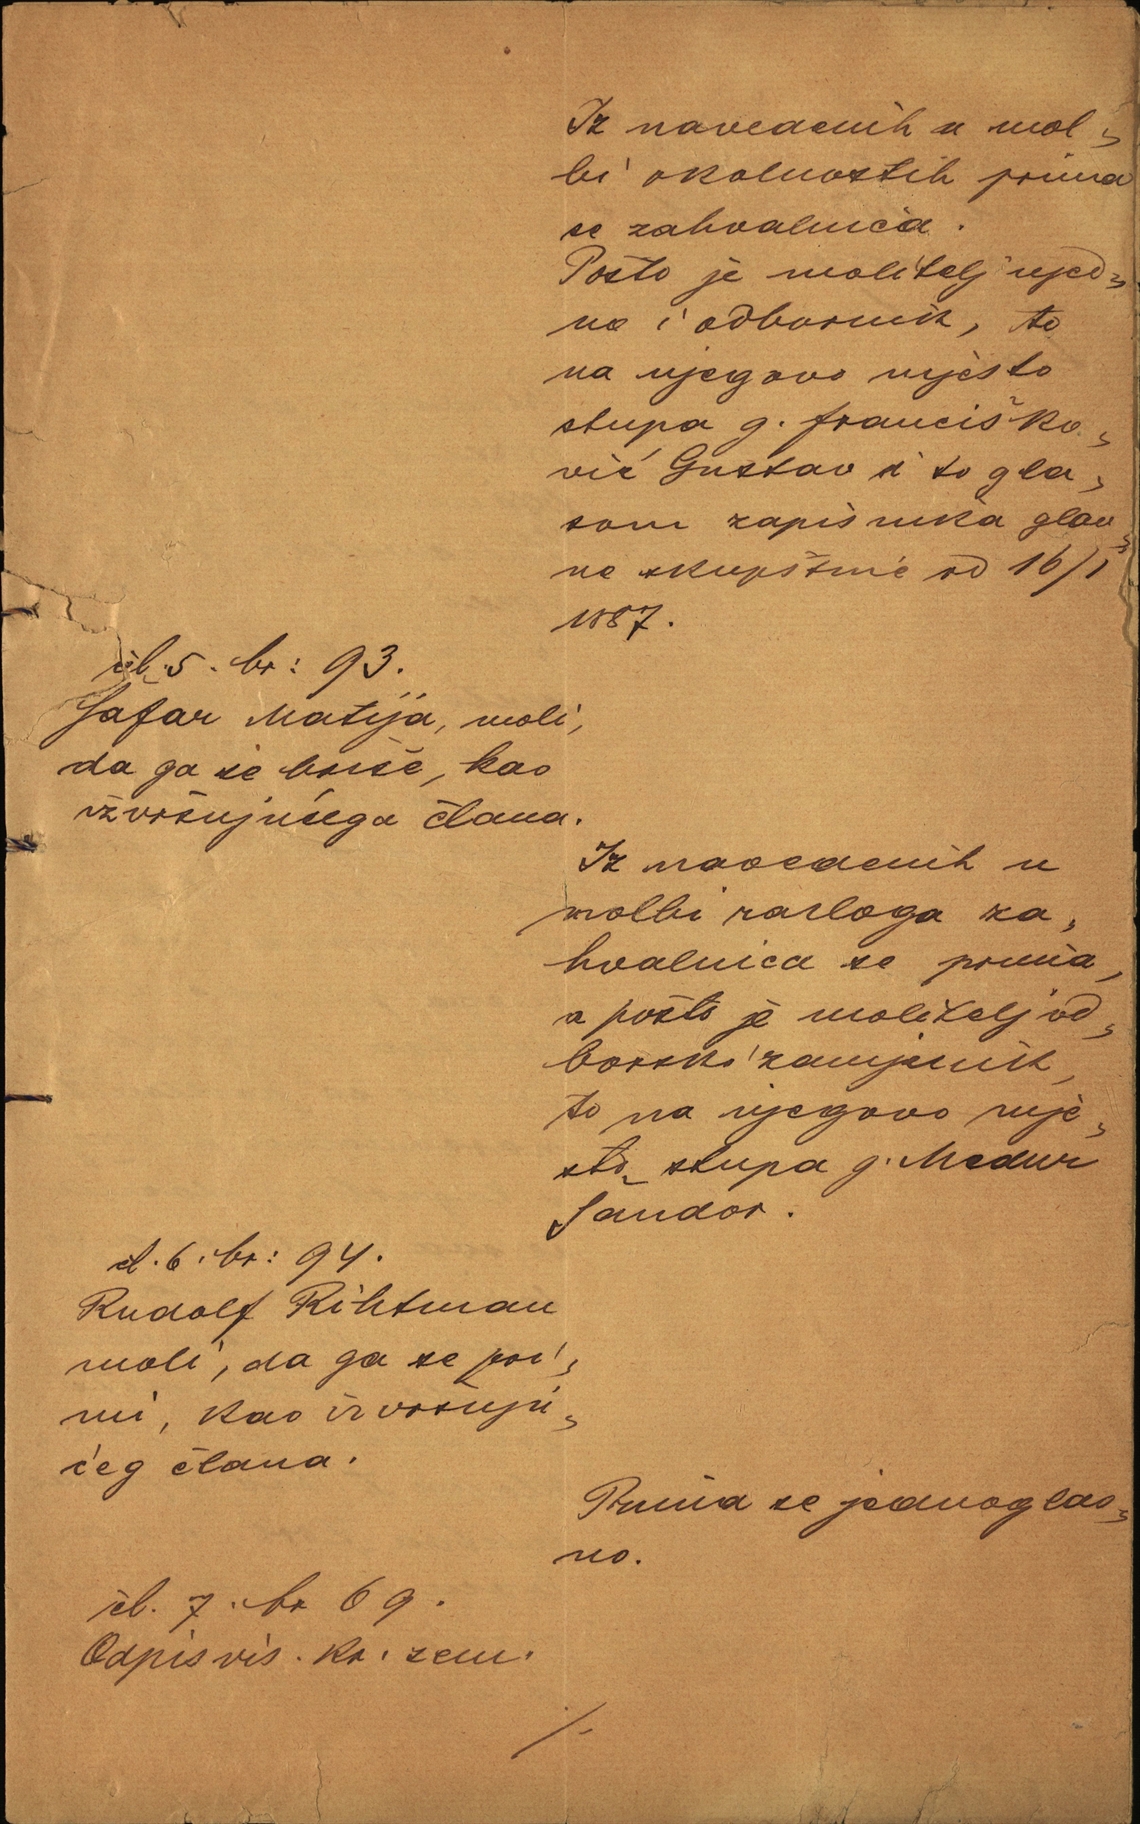 Iz navedenih u mol„
bi okolnostih prima
se zahvalnica.
Pošto je molitelj ujed„
no i odbornik, to
na njegovo mjesto
stupa g. Francisko„
vić Gustav i to gla„
som zapisnika glav„
ne skupštine od 16/I
1887.
čl. 5. br: 93.
Šafar Matija, moli,
da ga se briše, kao
izvršujućega člana.
Iz navedenih u
molbi razloga za„
hvalnica se prima,
a pošto je molitelj od„
borski zamjenik,
to na njegovo mje„
sto stupa g. Medur
Šandor.
čl. 6. br: 94.
Rudolf Rihtman
moli, da ga se pri„
mi, kao izvršuju„
ćeg člana.
Prima se jednoglas„
no.
čl. 7. br 69.
Odpis vis. kr. zem.
/.